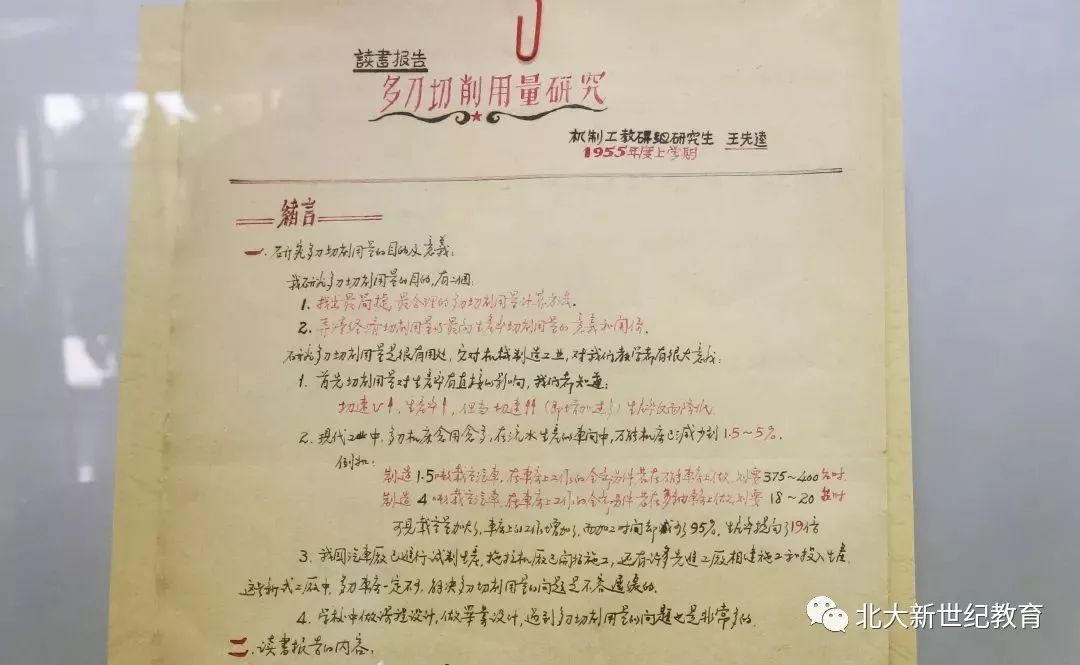 读書报告
多刀切削用量研究
机制工教研组研究生 王先逵
1955年度上学期
緒言
一. 研究多刀切削用量的目的及意義:
我研究多刀切削用量的目的,有二個:
1. 找出最简捷,最合理的多刀切削用量计算方法.
2. 弄清经济切削用量与最高生产率切削用量的意義和関係.
研究多刀切削用量是很有用处,它对机械制造工业,对我们教学都有很大意義:
1. 首先切削用量对生産率有直接的影响,我们都知道:
切速v↑,生産率↑,但当切速↑↑(即增加过多)生産率反而降低.
2. 现代工业中,多刀机床会用会多,在流水生産的車间中,万能机床已减少到1.5~5%.
例如:
制造1.5吨载重汽車,在車床上工作的全部另件若在万能車床上做,则要375~400台时
制造4吨载重汽車,在車床上工作的全部另件若在多軸車床上做,则要18~20台时
可見载重量加大了,車床上的工作增加了,而加工时间却减少了95%,生産率提高了19倍
3. 我国汽車廠已進行试制生産,拖拉机廠已開始施工,还有许多先進工廠相继施工和投入生産.
这些新式工廠中,多刀車床一定不少,解决多刀切削用量的问題是不容遲缓的.
4. 学校中做课程设计,做畢業设计,遇到多刀切削用量的问題也是非常多的.
二. 读書报告的内容:
北大新世纪教育